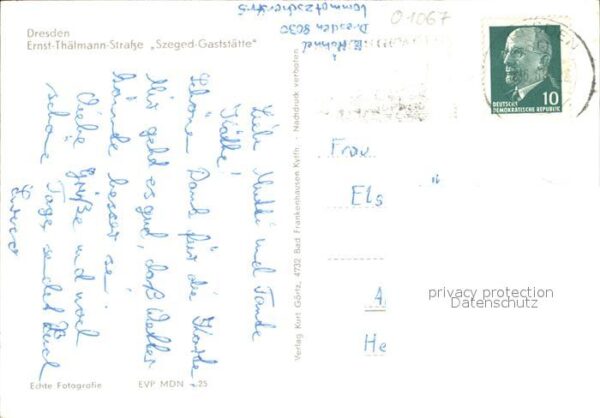 Dresden
Ernst-Thälmann-Straße „Szeged-Gaststätte"
Liebe Mutti und Tante
Käthe!
Schönen Dank für die Karte.
Mir geht es gut, das Wetter
könnte besser sein
Liebe Grüße und noch
schöne Tage sendet Euch
Echte Fotografie
EVP MDN 0.25
Verlag Kurt Görtz, 4732 Bad Frankenhausen Kyffh. - Nachdruck verboten
Dresden 8030
01067
DEUTSCHE
DEMOKRATISCHE REPUBLIK
10
Frau
Els
He
privacy protection
Datenschutz